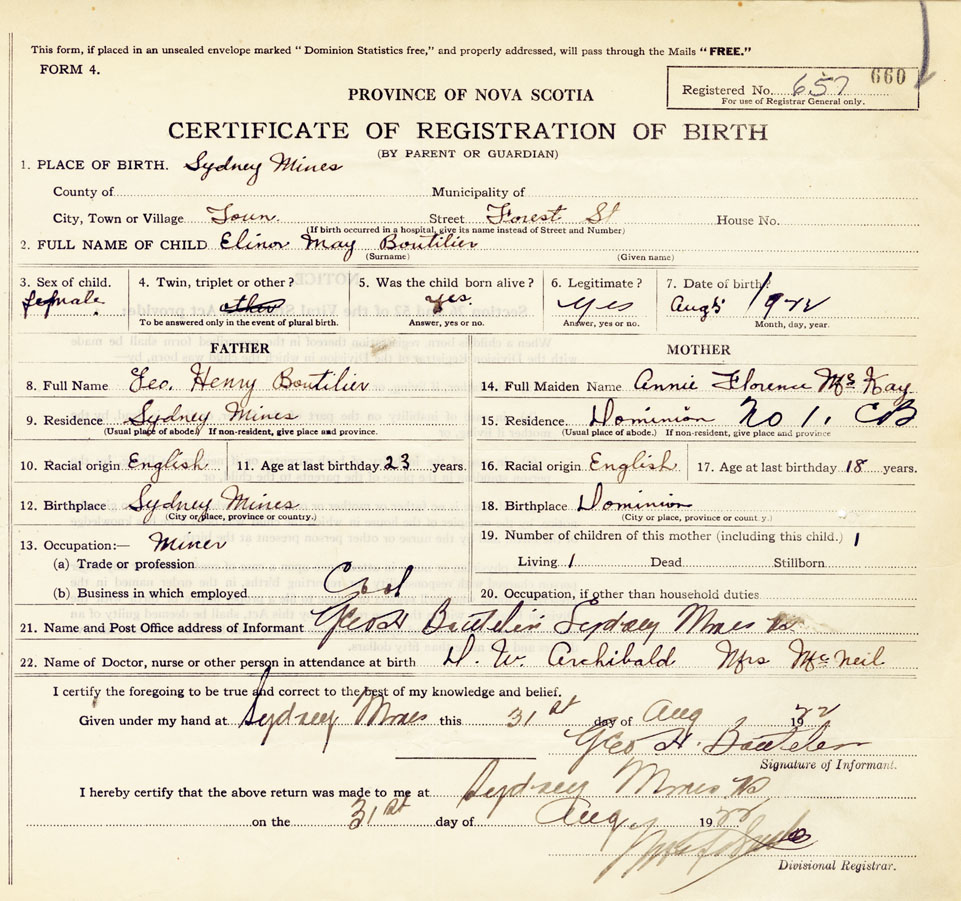 This form, if placed in an unsealed envelope marked "Dominion Statistics free," and properly addressed, will pass through the Mails "FREE."
FORM 4.
660
Registered No. 657
For use of Registrar General only.
PROVINCE OF NOVA SCOTIA
CERTIFICATE OF REGISTRATION OF BIRTH
(BY PARENT OR GUARDIAN)
1. PLACE OF BIRTH. Sydney Mines
County of Municipality of
City, Town or Village Town Street Forest St House No.
(If birth occurred in a hospital, give its name instead of Street and Number)
2. FULL NAME OF CHILD Elinor May Boutilier
(Surname) (Given name)
3. Sex of child. 4. Twin, triplet or other? 5. Was the child born alive? 6. Legitimate? 7. Date of birth?
female other yes. yes Aug 5 1922
To be answered only in the event of plural birth. Answer, yes or no. Answer, yes or no. Month, day, year.
FATHER MOTHER
8. Full Name Geo. Henry Boutilier 14. Full Maiden Name Annie Florence McKay
9. Residence Sydney Mines 15. Residence Dominion No 1, CB
(Usual place of abode.) If non-resident, give place and province. (Usual place of abode.) If non-resident, give place and province
10. Racial origin English 11. Age at last birthday 23 years. 16. Racial origin English 17. Age at last birthday 18 years.
12. Birthplace Sydney Mines 18. Birthplace Dominion
(City or place, province or country.) (City or place, province or county.)
13. Occupation:— Miner 19. Number of children of this mother (including this child.) 1
(a) Trade or profession Living 1 Dead Stillborn
(b) Business in which employed Coal 20. Occupation, if other than household duties
21. Name and Post Office address of Informant Geo H Boutelier Sydney Mines NS
22. Name of Doctor, nurse or other person in attendance at birth D. W. Archibald Mrs McNeil
I certify the foregoing to be true and correct to the best of my knowledge and belief.
Given under my hand at Sydney Mines this 31st day of Aug 1922
Geo H. Boutelier
Signature of Informant.
I hereby certify that the above return was made to me at Sydney Mines NS
on the 31st day of Aug. 1922
Divisional Registrar.